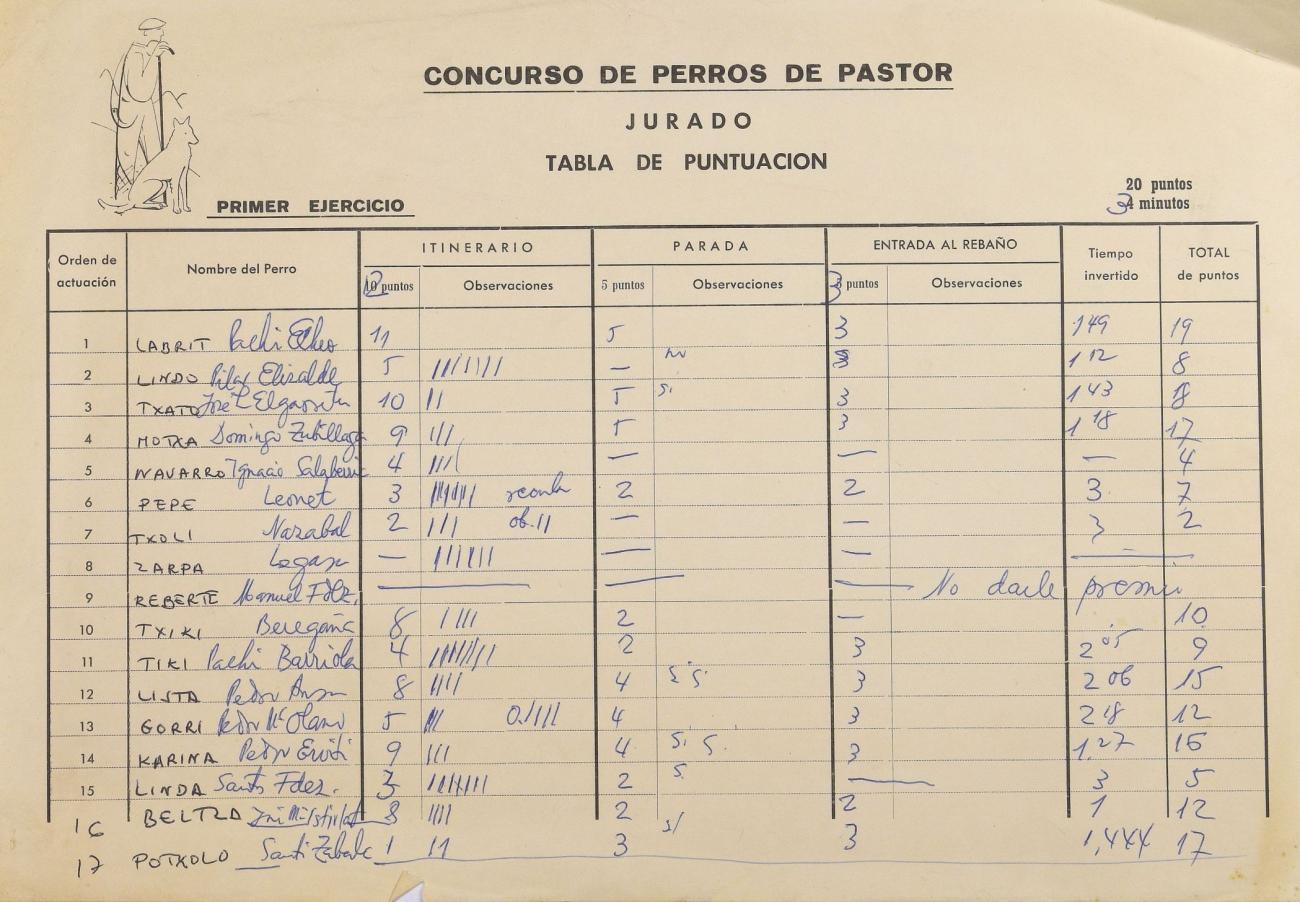 CONCURSO DE PERROS DE PASTOR
JURADO
TABLA DE PUNTUACION
20 puntos
PRIMER EJERCICIO
3 minutos
Orden de actuación Nombre del Perro ITINERARIO PARADA ENTRADA AL REBAÑO Tiempo invertido TOTAL de puntos
puntos Observaciones 5 puntos Observaciones 3 puntos Observaciones
1 LABRIT Pachi 11 5 3 149 19
2 LINDO Pilar Elizalde 5 ||||||| — no 3 1 12 8
3 TXATO José 10 || 5 si 3 1 43 18
4 MOTXA Domingo Zubillaga 9 ||| 5 3 1 18 17
5 NAVARRO Ignacio 4 ||| — — — 4
6 PEPE Leonet 3 2 2 3 7
7 TXOLI Nazabal 2 ||| ob. || — — 3 2
8 ZARPA — |||||| — — —
9 REBERTE Manuel Fdez. — — — No darle premio
10 TXIKI Beregaña 8 |||| 2 — 10
11 TIKI Pachi Barriola 4 2 3 2 05 9
12 LISTA Pedro 8 |||| 4 3 2 06 15
13 GORRI Pedro Mª Olano 5 ||| O. |||| 4 3 2 18 12
14 KARINA Pedro 9 ||| 4 3 1,27 16
15 LINDA Santos Fdez. 3 2 — 3 5
16 BELTZA 8 |||| 2 2 1 12
17 POTXOLO Santi Zabala 11 3 3 17